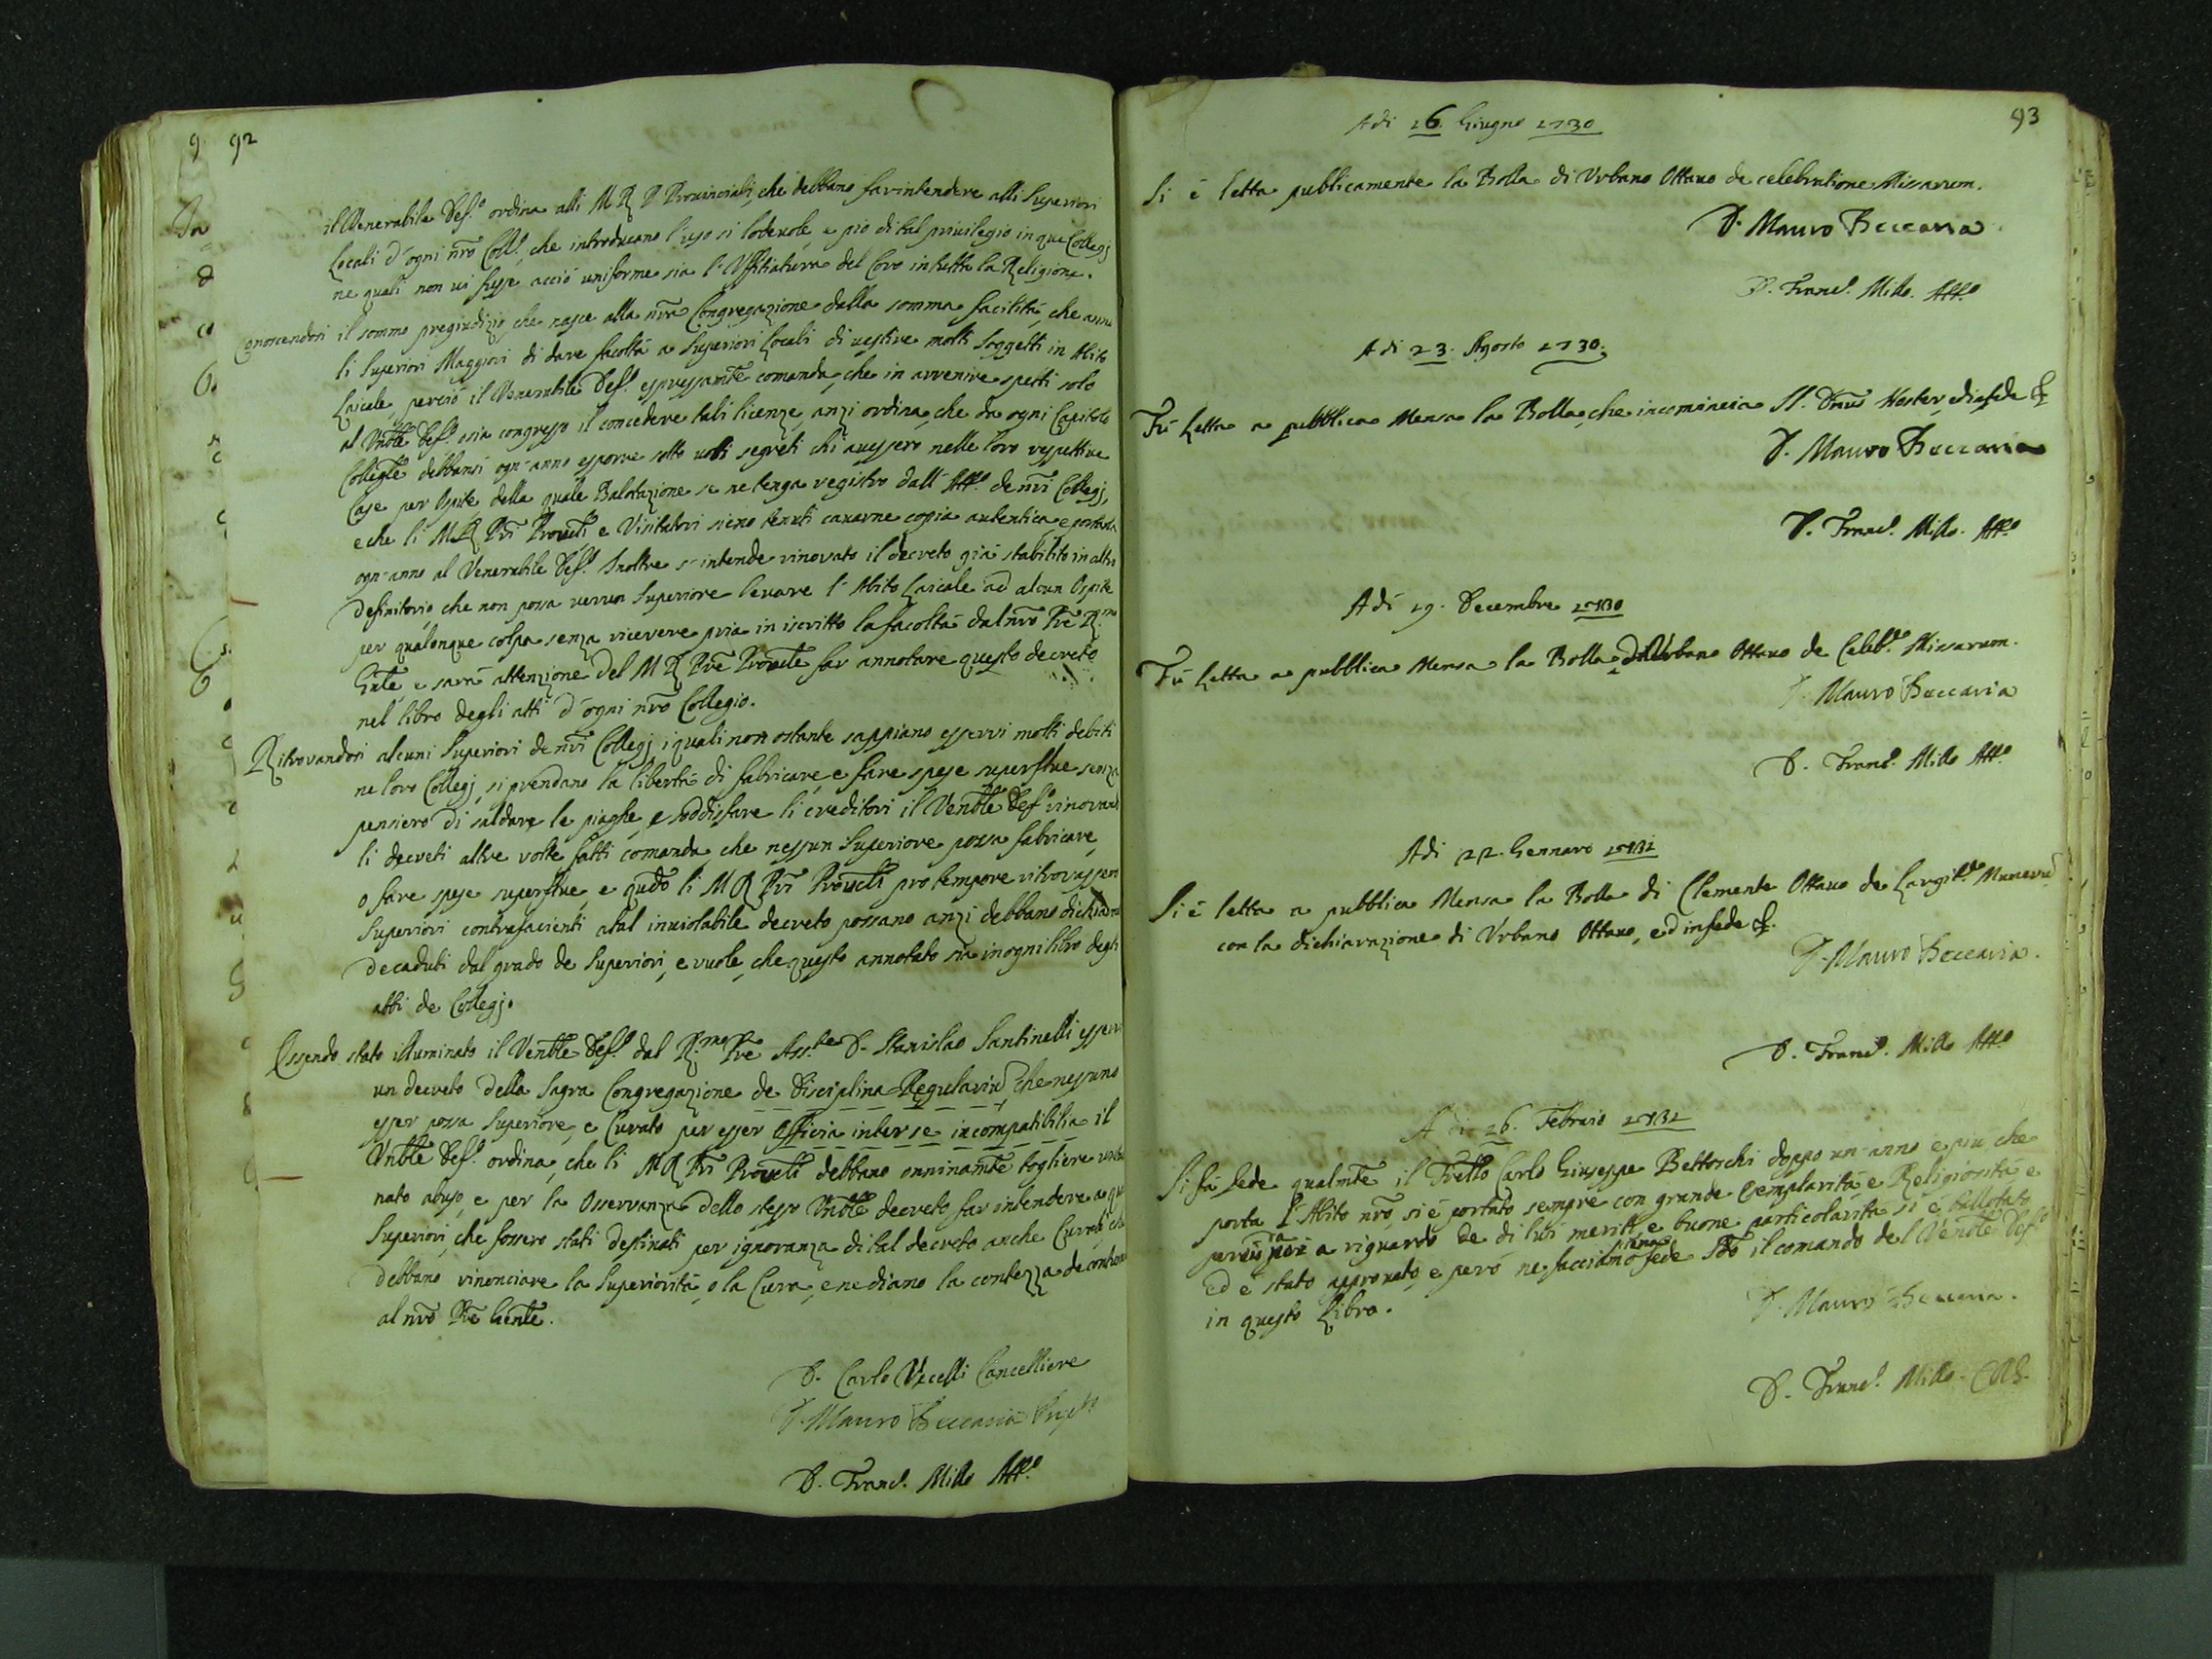 92
il Venerabile Def.º ordina alli M R P Provinciali, che debbano far intendere alli Superiori
Locali d'ogni nrõ Coll.º, che introducano l'uso sì lodevole e pio di tal privilegio in que Collegj
ne quali non vi fusse acciò uniforme sia l'Uffitiatura del Coro in tutta la Religione.
Conoscendosi il sommo pregiudizio che nasce alla nrã Congregazione dalla somma facilità, che anno
li Superiori Maggiori di dare facoltà a Superiori Locali di vestire molti Soggetti in Abito
Laicale, perciò il Venerabile Def.º espressamtẽ comanda, che in avvenire spetti solo
al Vnblẽ Def.º osia congresso il concedere tali licenze, anzi ordina, che da ogni Capitolo
Collegle debbansi ogn'anno esporre sotto voti segreti chi avessero nelle loro respettive
Case per Ospite, della quale Balotazione se ne tenga registro dall'Att.º de nrĩ Collegj,
e che li M R Prĩ Provcli, e Visitatori sieno tenuti cavarne copia autentica, e portarla
ogn'anno al Venerabile Def.º Inoltre s'intende rinovato il decreto già stabilito in altro
Definitorio, che non possa verun Superiore levare l'Abito Laicale ad alcun Ospite
per qualonque colpa senza ricevere pria in iscritto la facoltà dal nrõ Prẽ R.mo
Gnle, e sarà attenzione del M R Prẽ Provcle far annotare questo decreto
nel libro degli atti d'ogni nrõ Collegio.
Ritrovandosi alcuni Superiori de nrĩ Collegj i quali non ostante sappiano esservi molti debiti
ne loro Collegj, si prendano la libertà di fabricare, e fare spese superflue senza
pensiero di saldare le piaghe, e soddisfare li creditori il Venblẽ Def.º rinovando
li decreti altre volte fatti comanda, che nessun Superiore possa fabricare,
o fare spese superflue, e qndo li M R Prĩ Provcli pro tempore ritrovassero
Superiori contrafacienti a tal inviolabile decreto possano anzi debbano dichiararli
decaduti dal grado de Superiori, e vuole, che questo annotato sia in ogni libro degli
atti de Collegj.
Essendo stato illuminato il Venblẽ Def.º dal R.mo Prẽ Ass.te D. Stanislao Santinelli esservi
un decreto della Sagra Congregazione de Disciplina Regulariũ, che nessuno
esser possa Superiore, e Curato per esser Officia inter se incompatibilia il
Vnblẽ Def.º ordina, che li M R Prĩ Provcli debbano onninamtẽ togliere un tal
nato abuso, e per la Osservanza dello stesso Vnblẽ decreto far intendere a que
Superiori, che fossero stati destinati per ignoranza di tal decreto anche Curati che
debbano rinonciare la Superiorità, o la Cura, e ne diano la contezza
al nrõ Prẽ Genle.
D. Carlo Vecelli Cancelliere
D. Mauro Beccaria
D. Franc.º Millo Att.º
93
Adi 16. Giugno 1730
Si è letta publicamente la Bolla di Urbano Ottavo de celebratione Missarum.
D. Mauro Beccaria
D. Franc.º Millo. Att.º
Adi 23. Agosto 1730.
Fù Letta a pubblica Mensa la Bolla, che incomincia SS. Dnus Noster,
D. Mauro Beccaria
D. Franc.º Millo. Att.º
Adi 19. Decembre 1730
Fù Letta a pubblica Mensa la Bolla di Urbano Ottavo de Celeb.ne Missarum.
D. Mauro Beccaria
D. Franc.º Millo Att.º
Adi 22. Gennaro 1731
Si è letta a pubblica Mensa la Bolla di Clemente Ottavo de Largit.ne Munerũ
con la dichiarazione di Urbano Ottavo, ed in fede &.
D. Mauro Beccaria.
D. Franc.º Millo Att.º
Adi 26. Febraio 1731
Si fà fede qualmte il Frello Carlo Giuseppe Bettoschi doppo un'anno e piu che
porta l'Abito nrõ, si è portato sempre con grande esemplarità e Religiosità, e
perciò a riguardo de di lui meriti, e buone particolarità si è ballotato
ed è stato approvato, e però ne facciamo piena fede il comando del Venblẽ Def.º
in questo Libro.
D. Mauro Beccaria.
D. Franc.º Millo